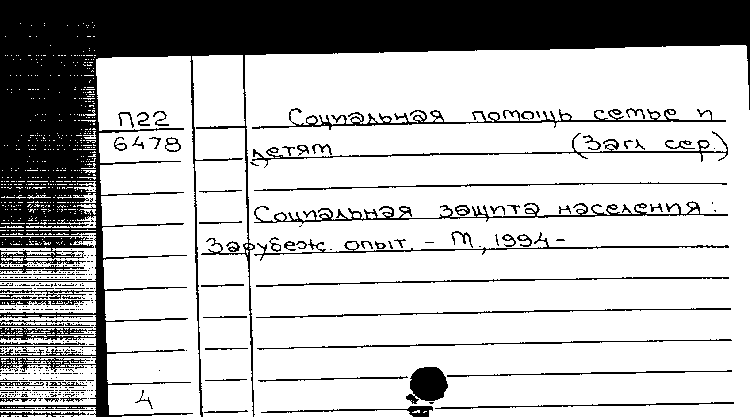 П22 Социальная помощь семье и
6478 детям (Загл сер.)
Социальная защита населения:
Зарубеж. опыт. - М., 1994-
4